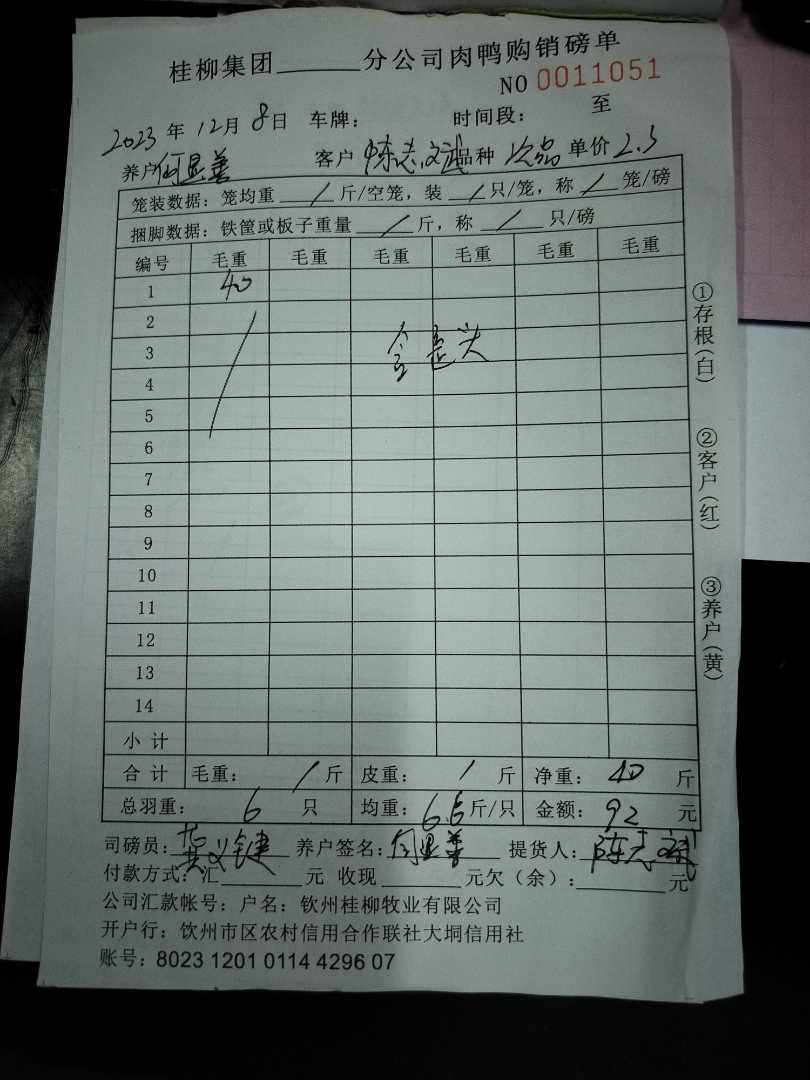 桂柳集团______分公司肉鸭购销磅单
NO 0011051
2023 年 12月 8日 车牌： 时间段： 至
养户 何显善 客户 陈志斌 品种 次品 单价 2.3
笼装数据：笼均重 / 斤/空笼，装 / 只/笼，称 / 笼/磅
捆脚数据：铁筐或板子重量 / 斤，称 / 只/磅
编号 毛重 毛重 毛重 毛重 毛重 毛重
1 40
2
3
4
5
6
7
8
9
10
11
12
13
14
小 计
合 计 毛重： / 斤 皮重： / 斤 净重： 40 斤
总羽重： 6 只 均重： 6.6 斤/只 金额： 92 元
司磅员： 黄义健 养户签名： 何显善 提货人： 陈志斌
付款方式：汇______元 收现______元欠（余）：______元
公司汇款帐号：户名：钦州桂柳牧业有限公司
开户行：钦州市区农村信用合作联社大垌信用社
账号：8023 1201 0114 4296 07
①存根(白)
②客户(红)
③养户(黄)